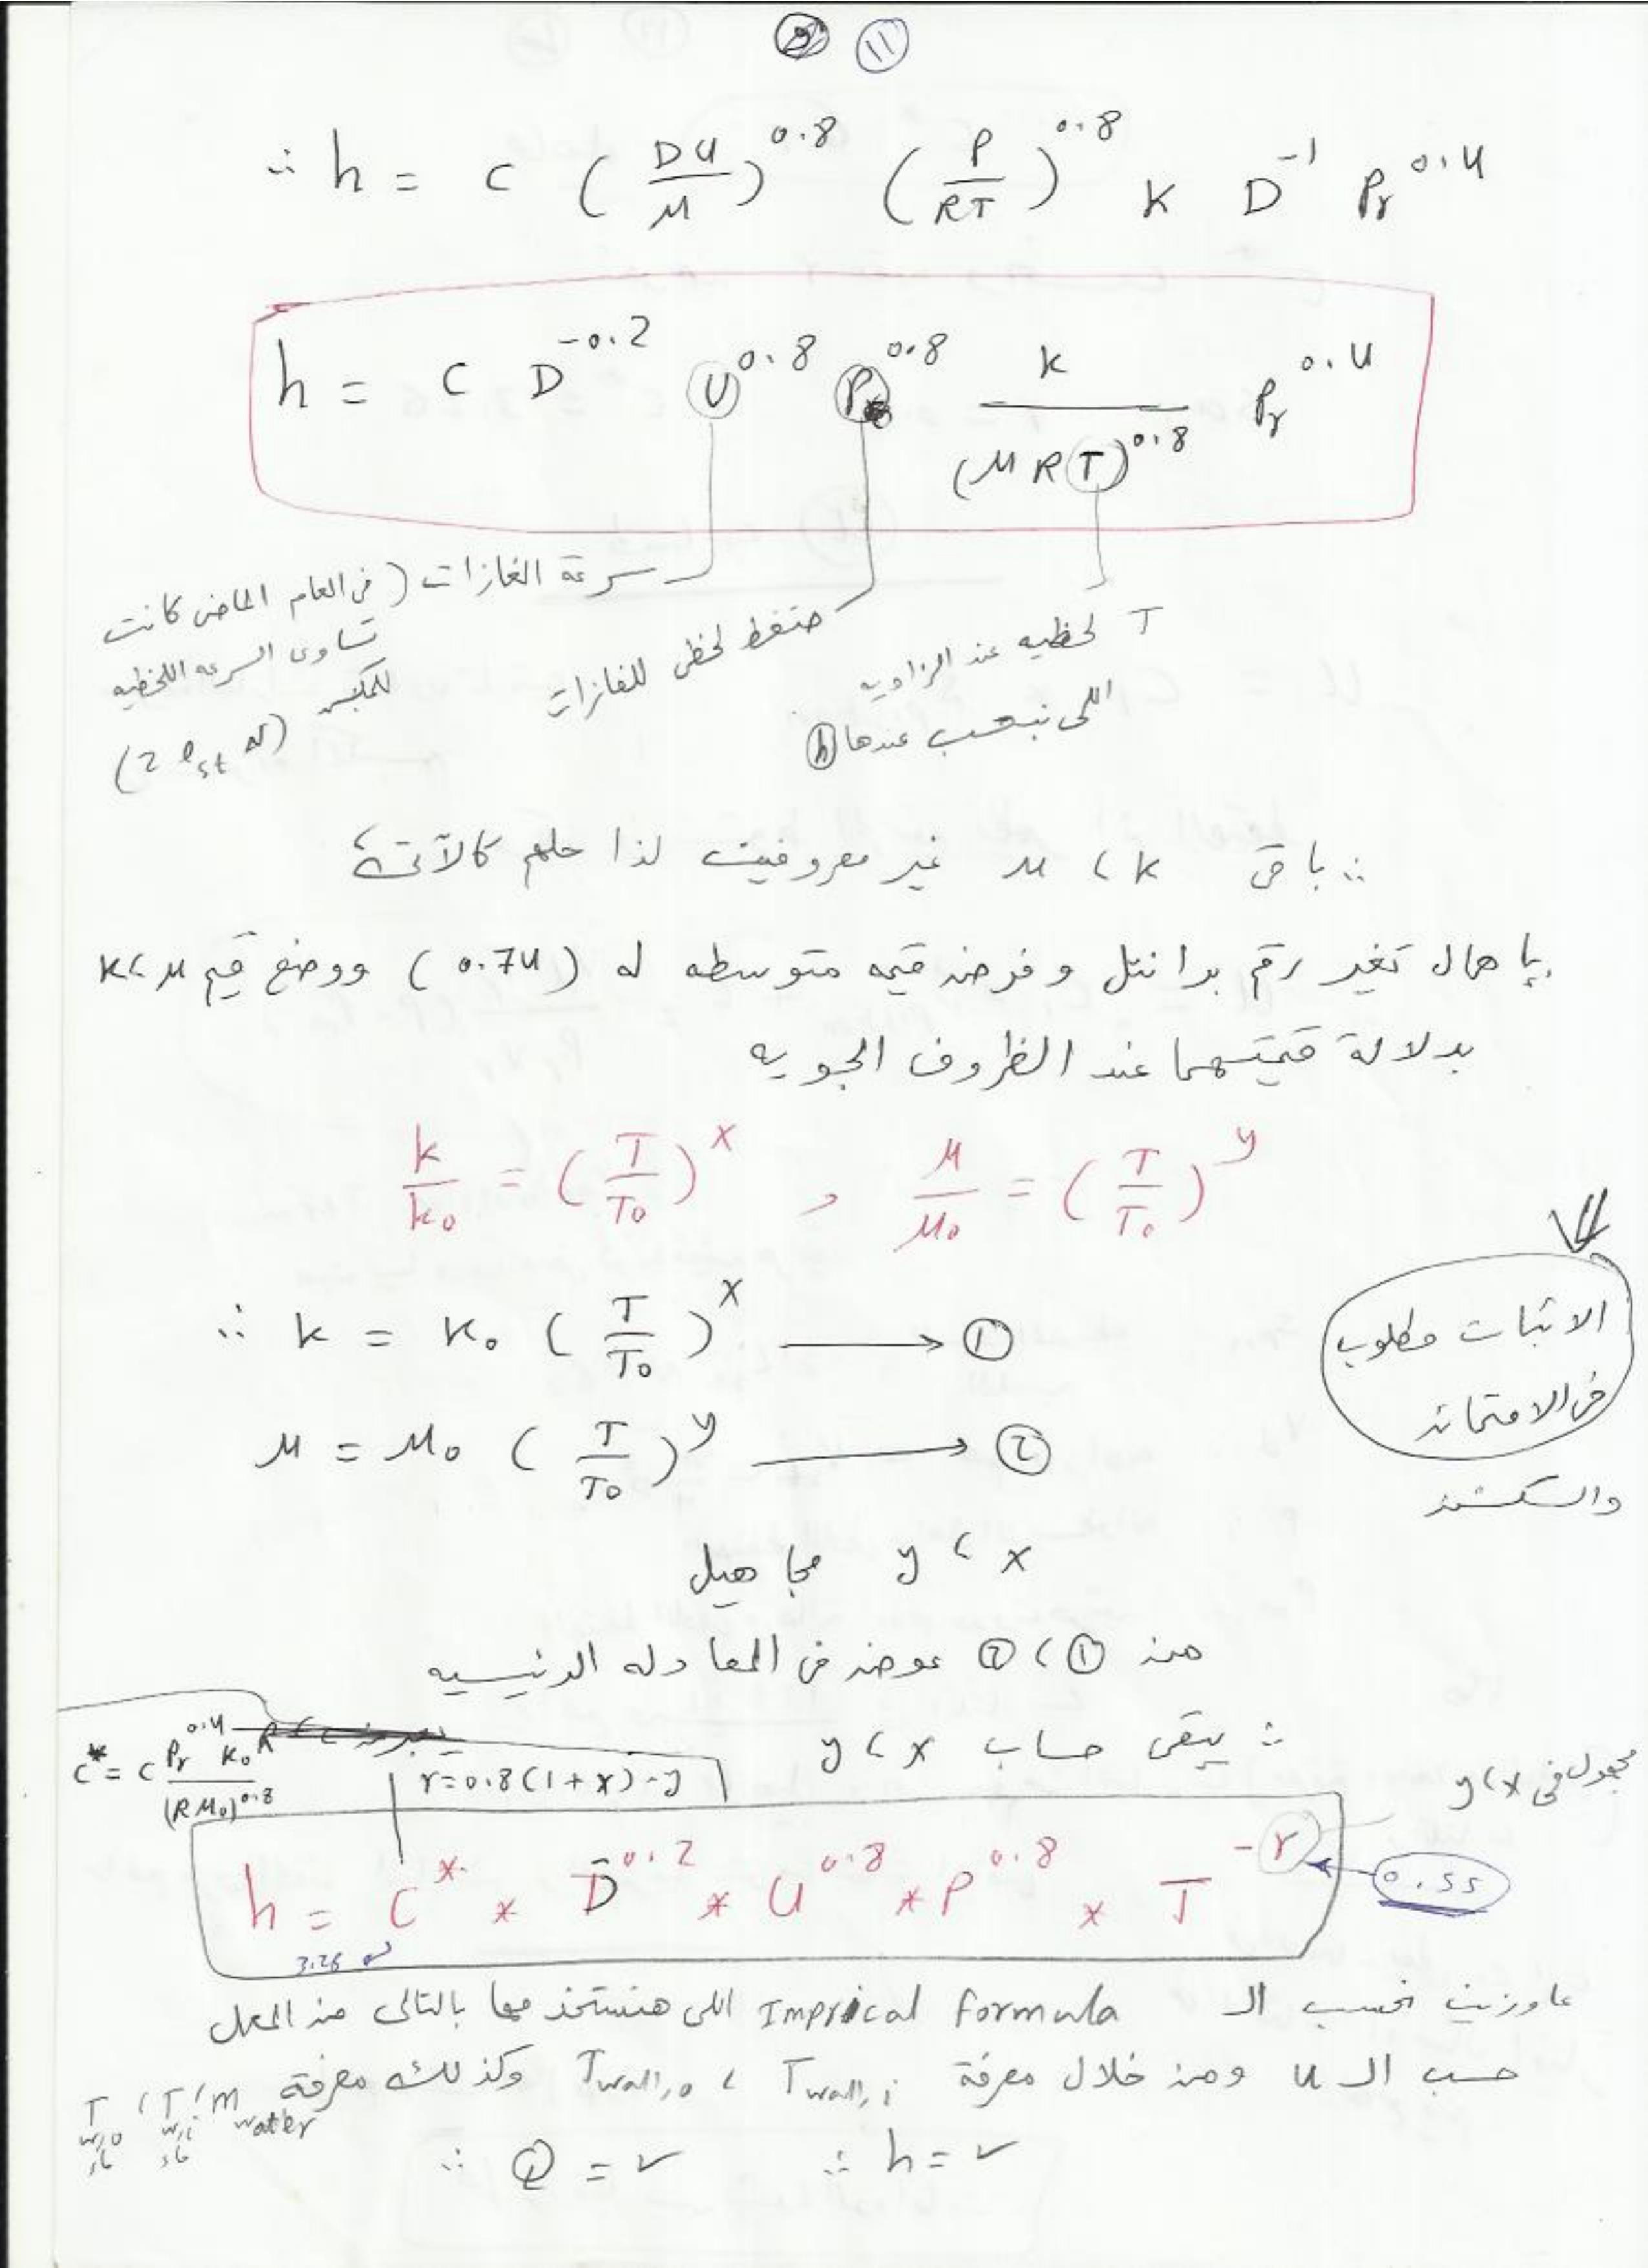 ⑪
∴ h = C (DU/μ)^0.8 (P/RT)^0.8 K D^-1 Pr^0.4
h = C D^-0.2 U^0.8 P^0.8 k/(μRT)^0.8 Pr^0.4
سرعة الغازات (فى العام الماضى كانت
تساوى السرعه اللحظيه
للمكبس
(2 l_st N)
ضغط لحظى للغازات
T لحظيه عند الزاويه
اللى نحسب عندها (h)
∴ باقى k ، μ غير معروفين لذا حلهم كالآتى
بإهمال تغير رقم براندتل وفرض قيمه متوسطه له (0.74) ووضع قيم μ ، k
بدلالة قيمتهما عند الظروف الجويه
k/k₀ = (T/T₀)^x , μ/μ₀ = (T/T₀)^y
∴ k = k₀ (T/T₀)^x → ①
μ = μ₀ (T/T₀)^y → ②
الاثبات مطلوب
فى الامتحان
والسكشن
x ، y مجاهيل
من ① ، ② عوض فى المعادله الرئيسيه
∴ يبقى حساب x ، y
C* = C Pr^0.4 k₀/(Rμ₀)^0.8
r=0.8(1+x)-y
مجهول فى x ، y
h = C* * D^-0.2 * U^0.8 * P^0.8 * T^-r
0.55
3.26
عاوزين نحسب الـ Imprical formula اللى هنستخدمها بالتالى من المعمل
حسب الـ U ومن خلال معرفة T wall,i ، T wall,o وكذلك معرفة m water ، T w,i ماء ، T w,o ماء
∴ h = ✓ ∴ Q = ✓